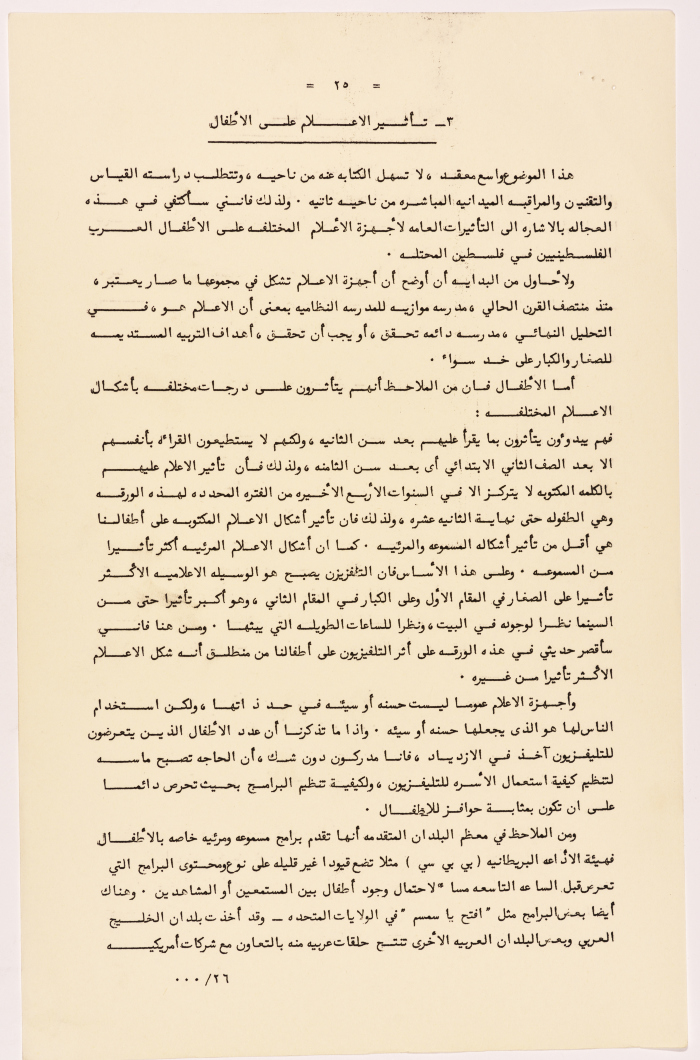 = ٢٥ =
٣ـ تـأثـير الاعـــلام علـى الاطفال
هذا الموضوع واسع معقد ، لا تسهل الكتابه عنه من ناحيه ، وتتطلب دراسته القياس
والتقنين والمراقبه الميدانيه المباشره من ناحيه ثانيه ٠ ولذلك فانني سأكتفي في هذه
العجاله بالاشاره الى التأثيرات العامه لأجهزة الأعلام المختلفه على الأطفال العرب
الفلسطينيين في فلسطين المحتله ٠
ولأحاول من البدايه أن أوضح أن أجهزة الاعلام تشكل في مجموعها ما صار يعتبر ،
منذ منتصف القرن الحالي ، مدرسه موازيه للمدرسه النظاميه بمعنى أن الاعلام هو ، في
التحليل النهائي ، مدرسه دائمه تحقق ، أو يجب أن تحقق ، أهداف التربيه المستديمه
للصغار والكبار على خد سواء ٠
أما الأطفال فان من الملاحظ أنهم يتأثرون على درجات مختلفه بأشكال
الاعلام المختلفه :
فهم يبدوءون يتأثرون بما يقرأ عليهم بعد سن الثانيه ، ولكنهم لا يستطيعون القراءه بأنفسهم
الا بعد الصف الثاني الابتدائي أى بعد سن الثامنه ، ولذلك فأن تأثير الاعلام عليهم
بالكلمه المكتوبه لا يتركز الا في السنوات الأربع الأخيره من الفتره المحدده لهذه الورقه
وهي الطفوله حتى نهاية الثانيه عشره ، ولذلك فان تأثير أشكال الاعلام المكتوبه على أطفالنا
هي أقل من تأثير أشكاله المسموعه والمرئيه ٠ كما ان أشكال الاعلام المرئيه أكثر تأثيرا
من المسموعه ٠ وعلى هذا الأساس فان التلفزيزن يصبح هو الوسيله الاعلاميه الأكثر
تأثيرا على الصغار في المقام الأول وعلى الكبار في المقام الثاني ، وهو أكبر تأثيرا حتى من
السينما نظرا لوجوده في البيت ، ونظرا للساعات الطويله التي يبثها ٠ ومن هنا فانني
سأقصر حديثي في هذه الورقه على أثر التلفزيون على أطفالنا من منطلق أنه شكل الاعلام
الأكثر تأثيرا من غيره ٠
وأجهزة الاعلام عموما ليست حسنه أو سيئه في حد ذاتها ، ولكن استخدام
الناس لها هو الذى يجعلها حسنه أو سيئه ٠ واذا ما تذكرنا أن عدد الأطفال الذين يتعرضون
للتليفزيون آخذ في الازدياد ، فانا مدركون دون شك ، أن الحاجه تصبح ماسه
لتنظيم كيفية استعمال الأسره للتليفزيون ، ولكيفية تنظيم البرامج بحيث تحرص دائما
على ان تكون بمثابة حوافز للاطفال ٠
ومن الملاحظ في معظم البلدان المتقدمه أنها تقدم برامج مسموعه ومرئيه خاصه بالأطفال
فهيئة الأذاعه البريطانيه ( بي بي سي ) مثلا تضع قيودا غير قليله على نوع ومحتوى البرامج التي
تعرض قبل الساعه التاسعه مساء لاحتمال وجود أطفال بين المستمعين أو المشاهدين ٠ وهناك
أيضا بعض البرامج مثل " افتح يا سمسم " في الولايات المتحده ــ وقد أخذت بلدان الخليج
العربي وبعض البلدان العربيه الأخرى تنتج حلقات عربيه منه بالتعاون مع شركات أمريكيه
٢٦/ ٠٠٠